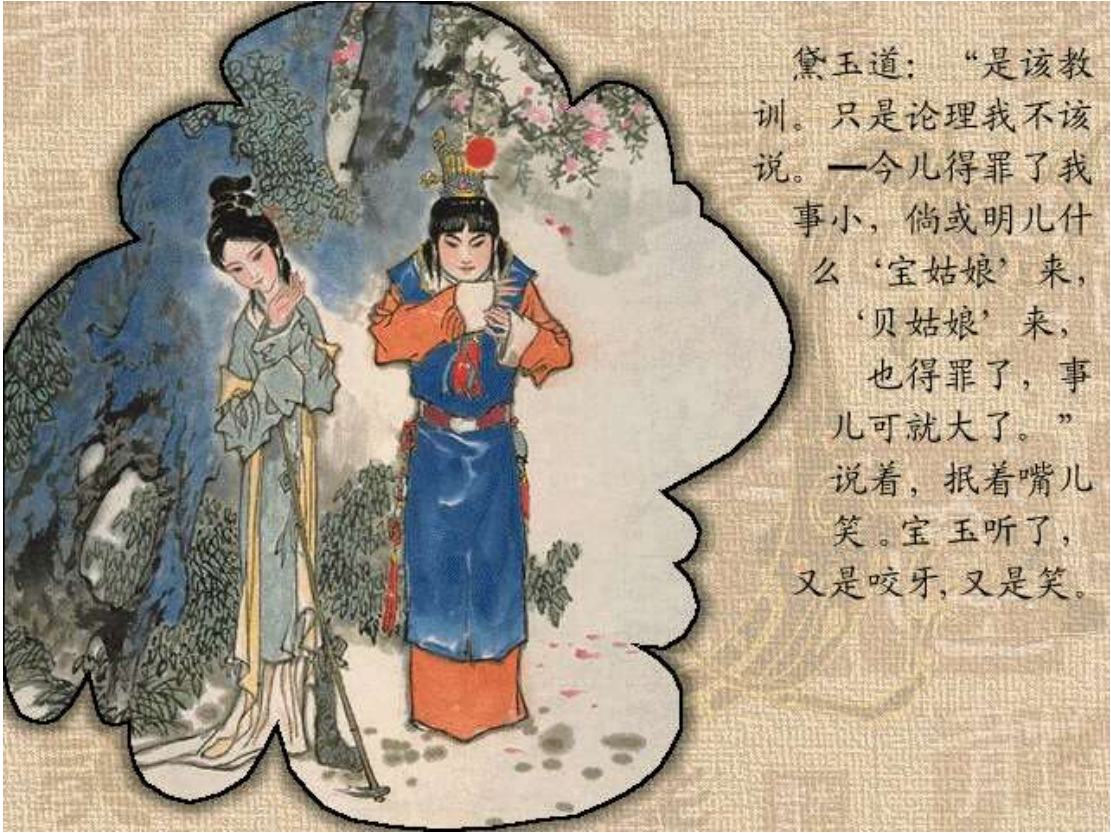 黛玉道：“是该教
训。只是论理我不该
说。—今儿得罪了我
事小，倘或明儿什
么‘宝姑娘’来，
‘贝姑娘’来，
也得罪了，事
儿可就大了。”
说着，抿着嘴儿
笑。宝玉听了，
又是咬牙,又是笑。